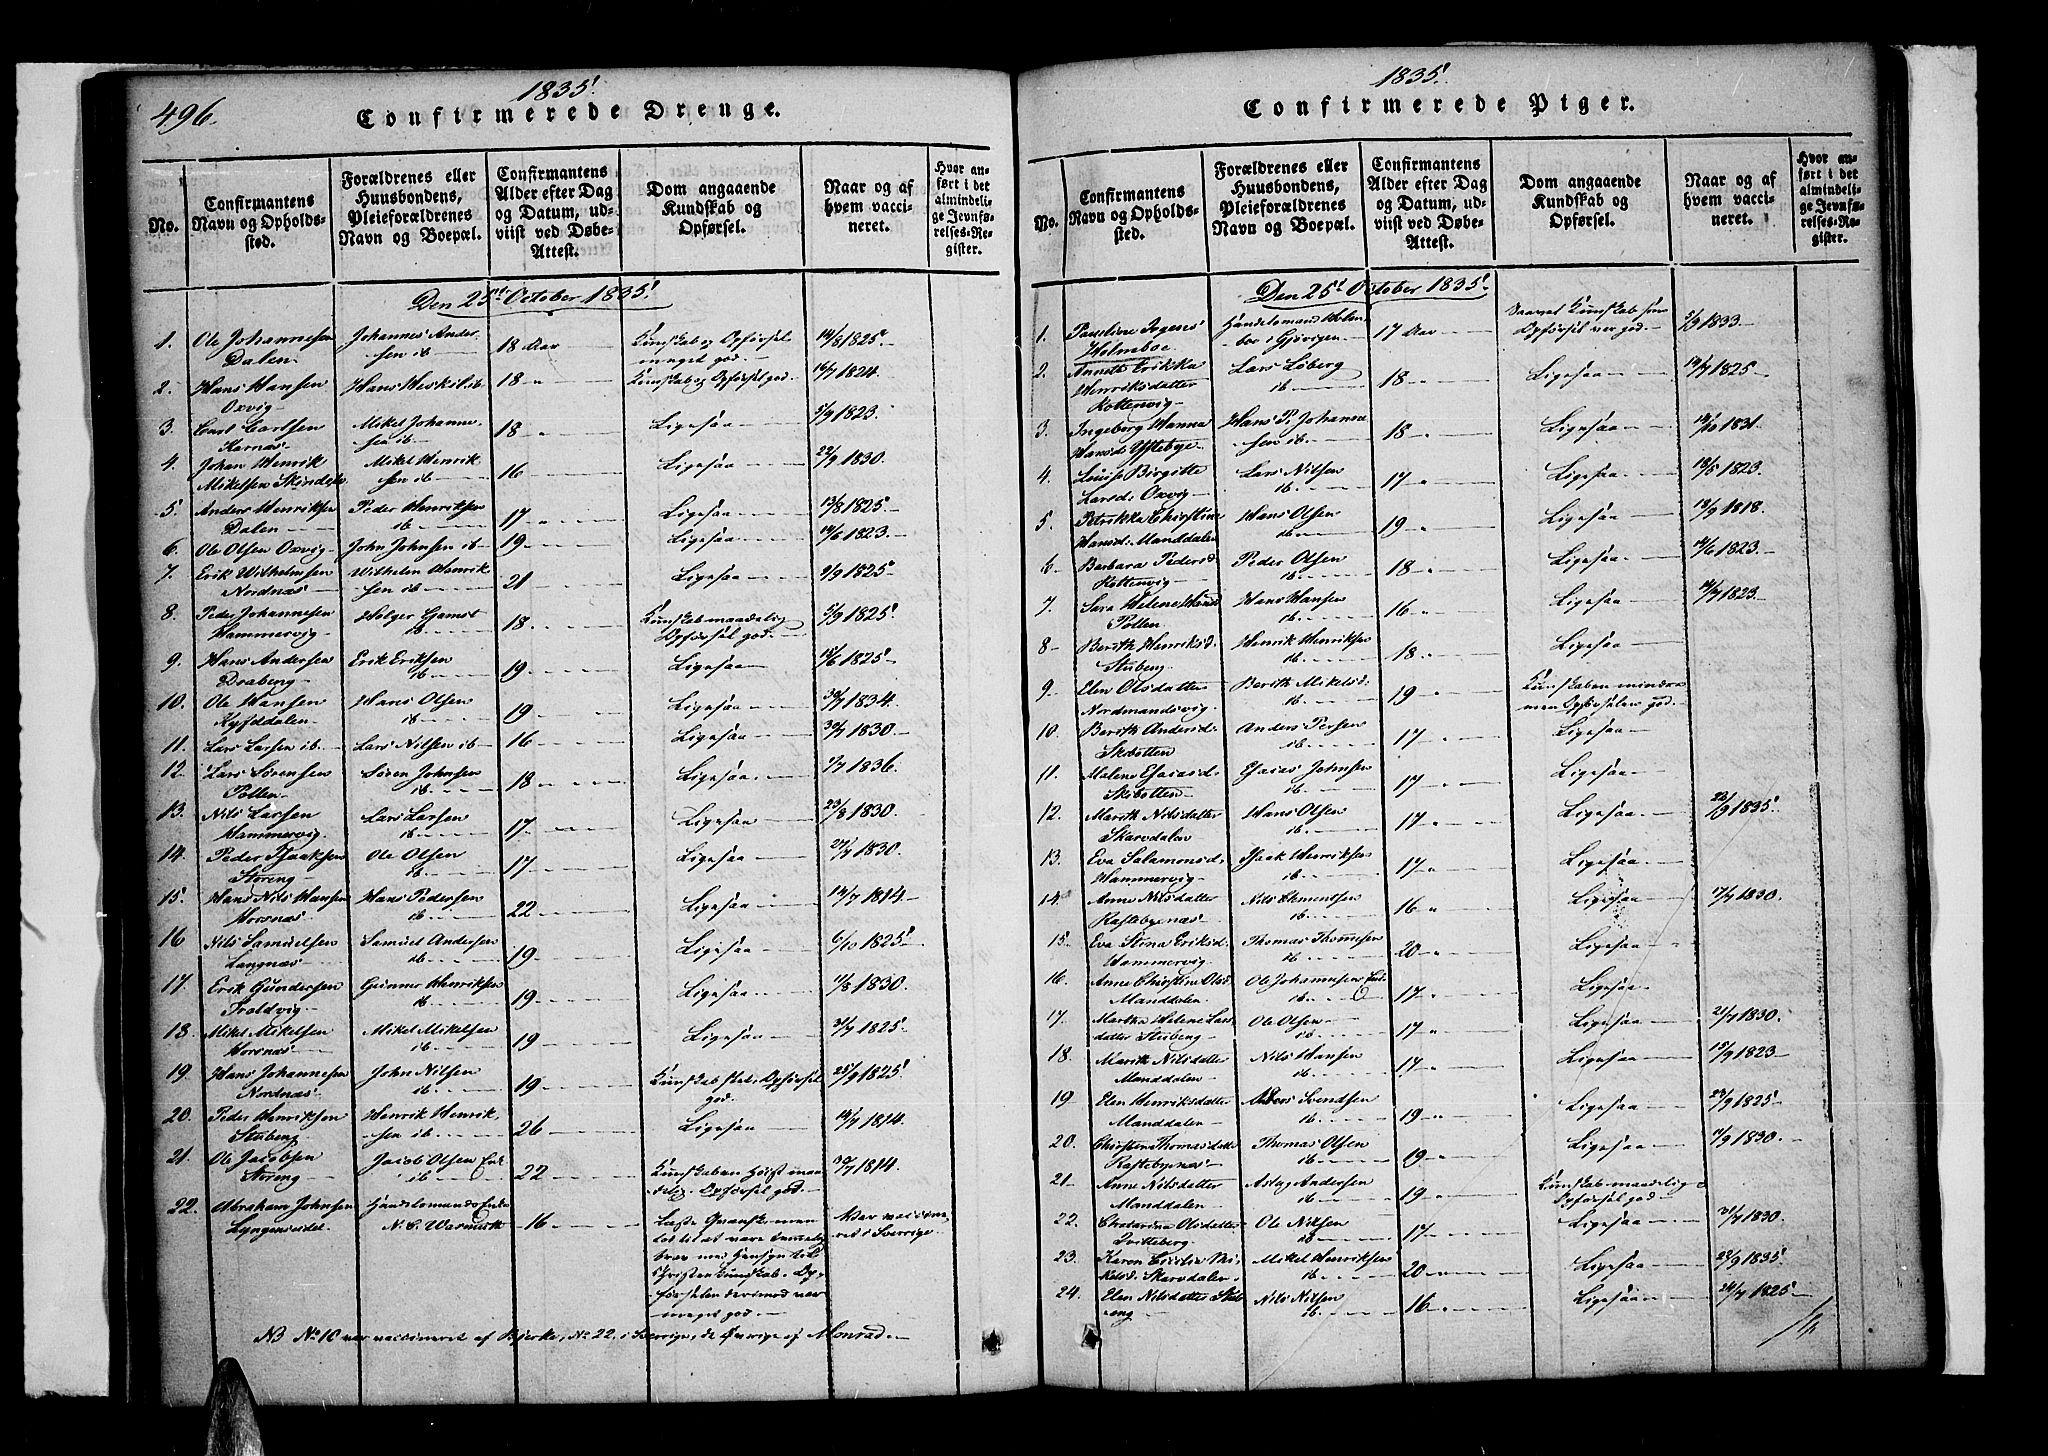 496.
1835!
Confirmerede Drenge.
No.
Confirmantens Navn og Opholdssted.
Forældrenes eller Huusbondens, Pleieforældrenes Navn og Boepæl.
Confirmantens Alder efter Dag og Datum, udviist ved Døbe-Attest.
Dom angaaende Kundskab og Opførsel.
Naar og af hvem vaccineret.
Hvor anført i det almindelige Jevnførelses-Register.
Den 25! October 1835!
1. Ole Johannesen Dalen Johannes Andersen ib 18 Aar Kunskab og Opførsel meget god. 14/8 1825
2. Hans Hansen Oxvig Hans Heskil ib 18 Kunskab og Opførsel god. 16/7 1824
3. Carl Carlsen Kornæs Mikel Johannesen ib 18 Ligesaa 5/9 1823
4. Johan Henrik Mikelsen Mikel Henriksen ib 16 Ligesaa 22/9 1830
5. Anders Henriksen Dalen Peder Henriksen ib 17 Ligesaa 13/8 1825
6. Ole Olsen Oxvig John Johnsen ib 19 Ligesaa 14/6 1823
7. Erik Wilhelmsen Nordnæs Wilhelm Henriksen ib 21 Ligesaa 9/9 1825
8. Peder Johannesen Hammervig Holger Gamst ib 18 Kunskab maadelig Opførsel god. 5/9 1825
9. Hans Andersen Draberg Erik Eriksen ib 19 Ligesaa 15/6 1825
10. Ole Hansen Kyfddalen Hans Olsen ib 19 Ligesaa 30/7 1834
11. Lars Larsen ib Lars Nilsen ib 16 Ligesaa 30/7 1830
12. Lars Sørensen Pollen Søren Johnsen ib 18 Ligesaa 7/7 1836
13. Nils Larsen Hammervig Lars Larsen ib 17 Ligesaa 23/8 1830
14. Peder Isaaksen Storeng Ole Olsen ib 17 Ligesaa 27/7 1830
15. Hans Nils Hansen Horsnæs Hans Pedersen ib 22 Ligesaa 14/7 1814
16 Nils Samuelsen Langnæs Samuel Andersen ib 19 Ligesaa 6/10 1825
17. Erik Gundersen Troldvig Gunner Henriksen ib 19 Ligesaa 11/8 1830
18. Mikel Mikelsen Horsnæs Mikel Mikelsen ib 19 Ligesaa 31/7 1825
19. Hans Johannesen Nordnæs John Nilsen ib 19 Kunskab Opførsel god. 25/9 1825
20. Peder Henriksen Stuberg Henrik Henriksen ib 26 Ligesaa 14/7 1814
21. Ole Jacobsen Storeng Jacob Olsen Enk ib 22 Kunskaben Høist maadelig. Opførsel god. 30/7 1814
22. Abraham Johnsen Lyngseidet Handelsmands Enke 16 Læste Qvænsk men
var
med Hensyn til
Christenkundskab. Opførselen derimod var meget god.
Var vaccineret i Sverrige.
NB No 10 var vaccineret af Bjerke, No 22. i Sverrige, de Øvrige af Monrad.
1835!
Confirmerede Piger.
No.
Confirmantens Navn og Opholdssted.
Forældrenes eller Huusbondens, Pleieforældrenes Navn og Boepæl.
Confirmantens Alder efter Dag og Datum, udviist ved Døbe-Attest.
Dom angaaende Kundskab og Opførsel.
Naar og af hvem vaccineret.
Hvor anført i det almindelige Jevnførelses-Register.
Den 25! October 1835!
1. Pauline Holmboe Handelsmand Holmboe i Gjøvigen 17 Aar Saavel Kunskab som Opførsel var god. 5/9 1833
2. Annette Erikka Henriksdatter Kottenvig Lars Löberg ib 18 Ligesaa 1825
3. Ingeborg Hanna Hansd. Yttebye Hans P. Johannesen ib 18 Ligesaa 1831
4. Louise Birgitte Larsd. Oxvig Lars Nilsen ib 17 Ligesaa 13/5 1823
5. Petrikka Christine Hansd. Manddalen Hans Olsen ib 19 Ligesaa 18/9 1818
6. Barbara Pedersd. Kottenvig Peder Olsen ib 18 Ligesaa 14/6 1823
7. Sara Helene Pollen Hans Hansen ib 16 Ligesaa 1823
8 Berith Henriksd. Stuberg Henrik Henriksen ib 18 Ligesaa
9. Elen Olsdatter Nordmandsvig Berith Mikelsd. ib 19 Kunskaben mindre men Opførselen god.
10. Berith Andersd. Skibotten Anders Persen ib 17 Ligesaa
11. Malene Esaiasd. Skibotten Esaias Johnsen ib 17 Ligesaa
12. Marith Nilsdatter Skarsdalen Hans Olsen ib 17 Ligesaa 22/9 1835
13. Eva Salamonsd. Hammervig Isak Henriksen ib 17 Ligesaa
14. Anne Nilsdatter Rastebynæs Nils Klementsen ib 16 Ligesaa 17/7 1830
15. Eva Stina Eriksd. Hammervig Thomas Thomesen ib 20 Ligesaa
16. Anne Christine Olsd. Manddalen Ole Johannesen Enke ib 17 Ligesaa
17. Martha Helene Larsdatter Stuberg Ole Olsen ib 17 Ligesaa 21/7 1830
18. Marith Nilsdatter Manddalen Nils Hansen ib 17 Ligesaa 15/9 1823
19 Elen Henriksdatter Manddalen Svendsen ib 19 Ligesaa 23/9 1825
20. Christine Thomasdatter Rastebynæs Thomas Olsen ib 19 Ligesaa 11/9 1830
21. Anne Nilsdatter Manddalen Aslag Andersen ib 19 Kunskab maadelig Opførsel god
22. Chatarina Olsdatter Ole Nilsen ib 17 Ligesaa 31/7 1830
23. Karen Cecilie Mikelsd. Skarsdalen Mikel Henriksen ib 20 Ligesaa 22/9 1835
24. Elen Nilsdatter Nils Nilsen ib 16 Ligesaa 24/7 1825